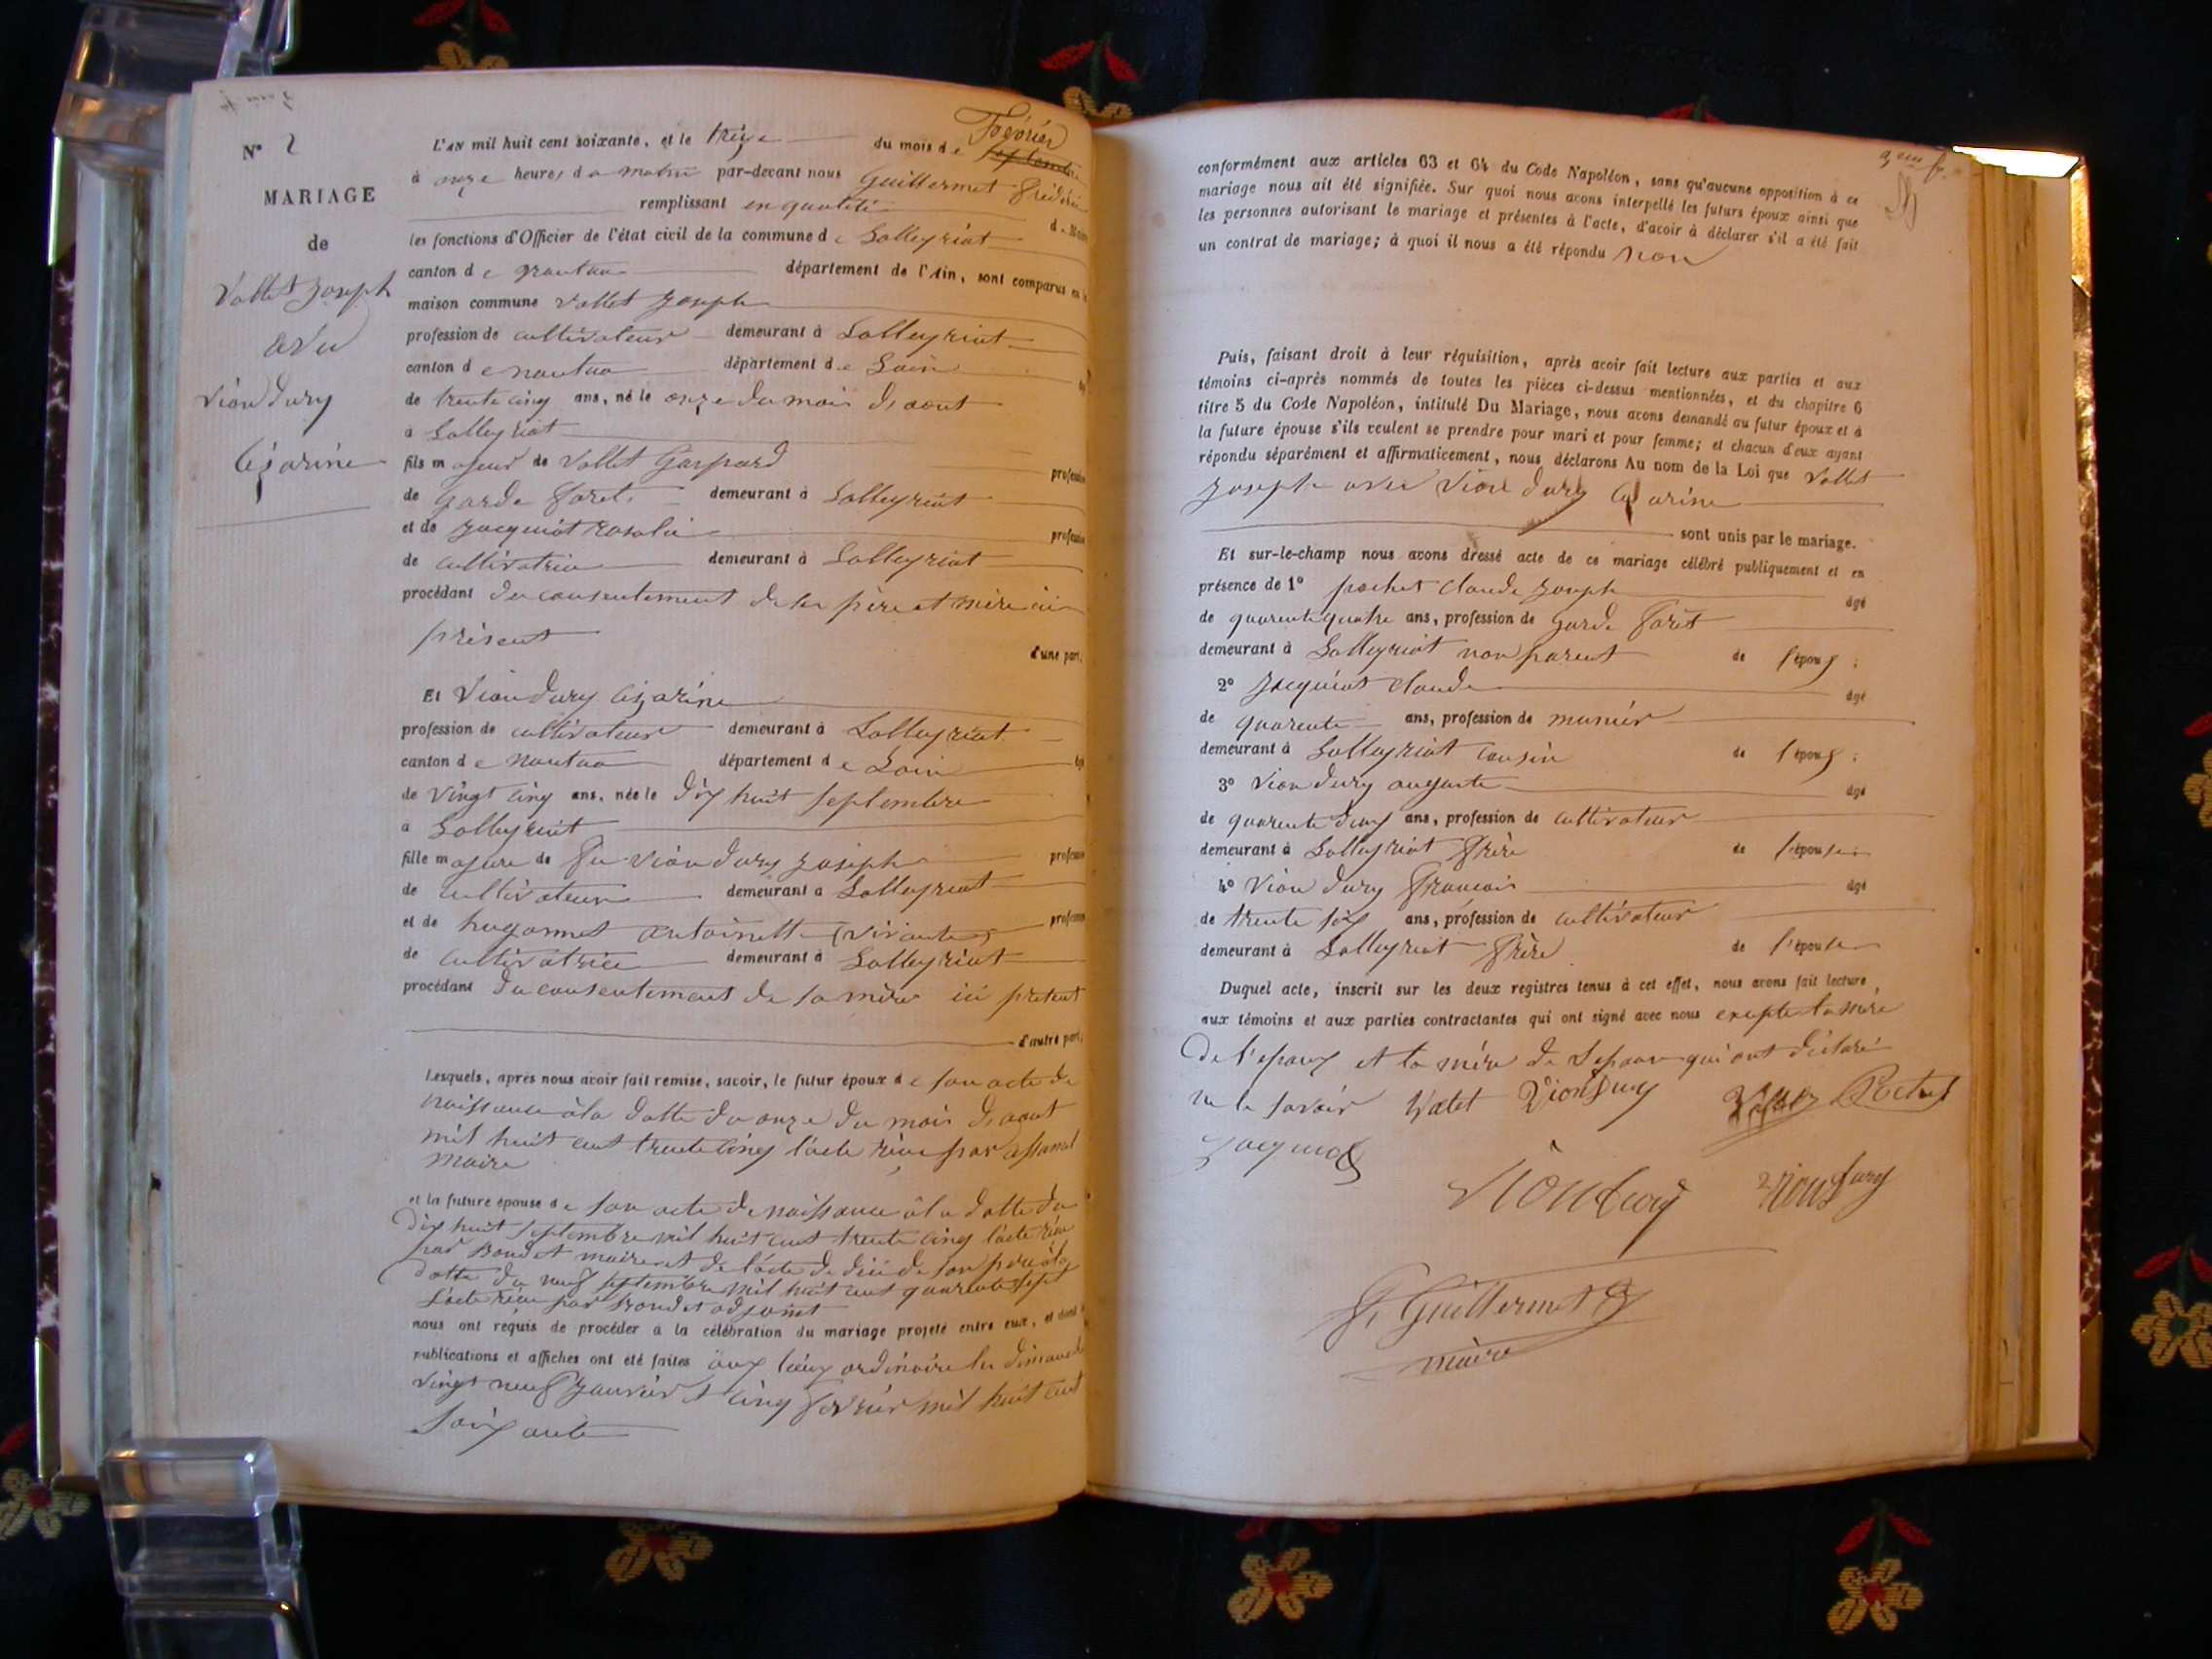 N° 2
MARIAGE
de
Vallet Joseph
avec
Vion dury
Cézarine
L'AN mil huit cent soixante, et le treize du mois de Février septembre
à onze heures du matin par-devant nous Guillermet Frédéric
remplissant en qualité de Maire
les fonctions d'Officier de l'état civil de la commune de Lalleyriat
canton de Nantua département de l'Ain, sont comparus en la
maison commune Vallet Joseph
profession de cultivateur demeurant à Lalleyriat
canton de Nantua département de Lain âgé
de trente cinq ans, né le onze du mois d'aout
à Lalleyriat
fils majeur de Vallet Gaspard profession
de garde foret demeurant à Lalleyriat
et de Jacquiot rosalie profession
de cultivatrice demeurant à Lalleyriat
procédant du consentement de ses père et mère ici
présent
d'une part,
Et Vion dury Cézarine
profession de cultivateur demeurant à Lalleyriat
canton de Nantua département de Lain âgé
de vingt cinq ans, née le dix huit septembre
à Lalleyriat
fille majeure de feu vion dury Joseph profession
de cultivateur demeurant à Lalleyriat
et de hugonnet antoinette (vivante) profession
de cultivatrice demeurant à Lalleyriat
procédant du consentement de sa mère ici présent
d'autre part,
Lesquels, après nous avoir fait remise, savoir, le futur époux de son acte de
naissance à la datte du onze du mois d'aout
mil huit cent trente cinq l'acte réçu par
maire
et la future épouse de son acte de naissance à la datte du
dix huit septembre mil huit cent trente cinq l'acte réçu
par Bondet maire et de l'acte de décè de son père à la
datte du neuf septembre mil huit cent quarante sept
l'acte réçu par Bondet adjoint
nous ont requis de procéder à la célébration du mariage projeté entre eux, et dont les
publications et affiches ont été faites aux lieux ordinaire les dimanche
vingt neuf Janvier et cinq fevrier mil huit cent
soixante
conformément aux articles 63 et 64 du Code Napoléon, sans qu'aucune opposition à ce
mariage nous ait été signifiée. Sur quoi nous avons interpellé les futurs époux ainsi que
les personnes autorisant le mariage et présentes à l'acte, d'avoir à déclarer s'il a été fait
un contrat de mariage; à quoi il nous a été répondu non
Puis, faisant droit à leur réquisition, après avoir fait lecture aux parties et aux
témoins ci-après nommés de toutes les pièces ci-dessus mentionnées, et du chapitre 6
titre 5 du Code Napoléon, intitulé Du Mariage, nous avons demandé au futur époux et à
la future épouse s'ils veulent se prendre pour mari et pour femme; et chacun d'eux ayant
répondu séparément et affirmativement, nous déclarons Au nom de la Loi que Vallet
Joseph avec Vion dury Cézarine
sont unis par le mariage.
Et sur-le-champ nous avons dressé acte de ce mariage célébré publiquement et en
présence de 1° pochet claude Joseph âgé
de quarente quatre ans, profession de garde foret
demeurant à Lalleyriat non parent de l'époux;
2° Jacquiot claude âgé
de quarente ans, profession de munier
demeurant à Lalleyriat cousin de l'époux;
3° Vion dury auguste âgé
de quarente deux ans, profession de cultivateur
demeurant à Lalleyriat frère de l'épouse;
4° Vion dury françois âgé
de trente six ans, profession de cultivateur
demeurant à Lalleyriat frère de l'épouse
Duquel acte, inscrit sur les deux registres tenus à cet effet, nous avons fait lecture
aux témoins et aux parties contractantes qui ont signé avec nous exepte la mere
de l'epoux et la mére de Lepouse qui ont déclaré
ne le savoir Vallet Viondury Vallet Pochet
Jacquiot
Viondury Viondury
F. Guillermet
maire